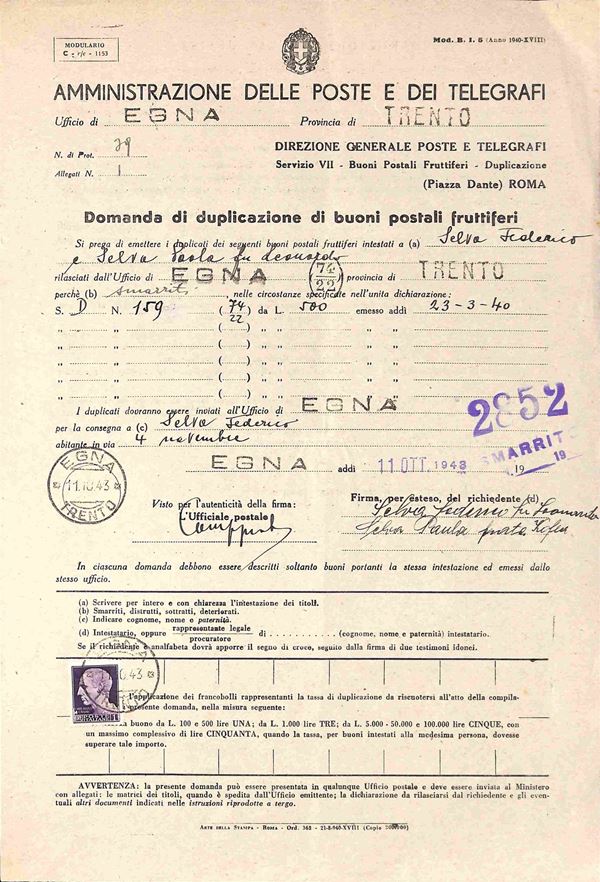 MODULARIO
Mod. B. I. 5 (Anno 1940-XVIII)
AMMINISTRAZIONE DELLE POSTE E DEI TELEGRAFI
Ufficio di EGNA Provincia di TRENTO
N. di Prot. 79
Allegati N. 1
DIREZIONE GENERALE POSTE E TELEGRAFI
Servizio VII - Buoni Postali Fruttiferi - Duplicazione
(Piazza Dante) ROMA
Domanda di duplicazione di buoni postali fruttiferi
Si prega di emettere i duplicati dei seguenti buoni postali fruttiferi intestati a (a) Selva Federico
e Selva Paola fu Leonardo
rilasciati dall'Ufficio di EGNA (74/22) provincia di TRENTO
perchè (b) smarriti, nelle circostanze specificate nell'unita dichiarazione:
S. D N. 159 (74/22) da L. 500 emesso addì 23-3-40
„ „ ( ) „ „ „ „
„ „ ( ) „ „ „ „
„ „ ( ) „ „ „ „
„ „ ( ) „ „ „ „
I duplicati dovranno essere inviati all'Ufficio di EGNA
per la consegna a (c) Selva Federico
abitante in via 4 novembre
2852
SMARRIT
EGNA addì 11 OTT. 1943 19 19
EGNA
11.10.43
TRENTO
Visto per l'autenticità della firma:
L'Ufficiale postale
Firma, per esteso, del richiedente (d)
Selva Federico fu Leonardo
Selva Paula
In ciascuna domanda debbono essere descritti soltanto buoni portanti la stessa intestazione ed emessi dallo
stesso ufficio.
(a) Scrivere per intero e con chiarezza l'intestazione dei titoli.
(b) Smarriti, distrutti, sottratti, deteriorati.
(c) Indicare cognome, nome e paternità.
(d) Intestatario, oppure rappresentante legale / procuratore di . . . . . . . (cognome, nome e paternità) intestatario.
Se il richiedente è analfabeta dovrà apporre il segno di croce, seguito dalla firma di due testimoni idonei.
43
l'applicazione dei francobolli rappresentanti la tassa di duplicazione da riscuotersi all'atto della compila-
presente domanda, nella misura seguente:
buono da L. 100 e 500 lire UNA; da L. 1.000 lire TRE; da L. 5.000 - 50.000 e 100.000 lire CINQUE, con
un massimo complessivo di lire CINQUANTA, quando la tassa, per buoni intestati alla medesima persona, dovesse
superare tale importo.
AVVERTENZA: la presente domanda può essere presentata in qualunque Ufficio postale e deve essere inviata al Ministero
con allegati: le matrici dei titoli, quando è spedita dall'Ufficio emittente; la dichiarazione da rilasciarsi dal richiedente e gli even-
tuali altri documenti indicati nelle istruzioni riprodotte a tergo.
ARTE DELLA STAMPA - ROMA - Ord. 368 - 21-8-940-XVIII